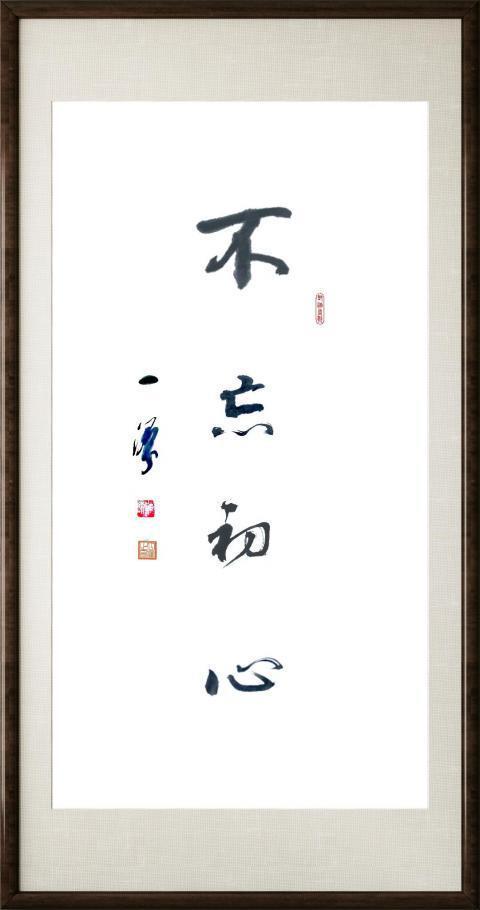 不忘初心
一